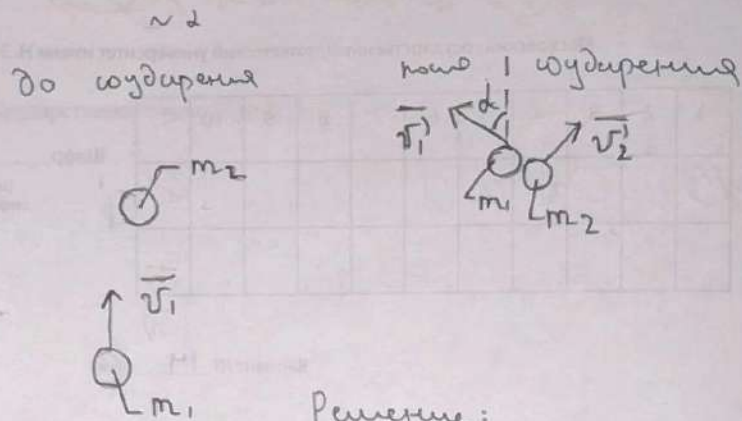 ~ 2
до соударения
после соударения
m₂
v̄₁' α v̄₂'
m₁ m₂
v̄₁
m₁
Решение: